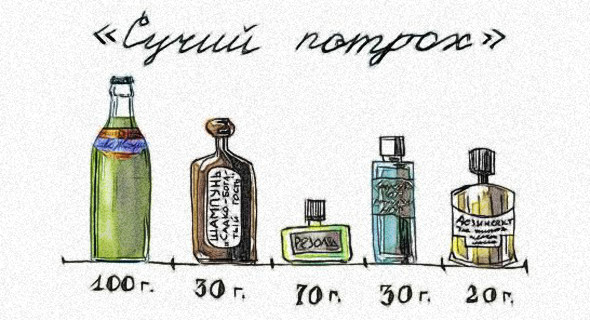 «Сучий потрох»
ШАМПУНЬ
„САДКО-БОГА-
ТЫЙ ГОСТЬ"
РЕЗОЛЬ
ДЕЗИНСЕКТ
100 г.
30 г.
70 г.
30 г.
20 г.